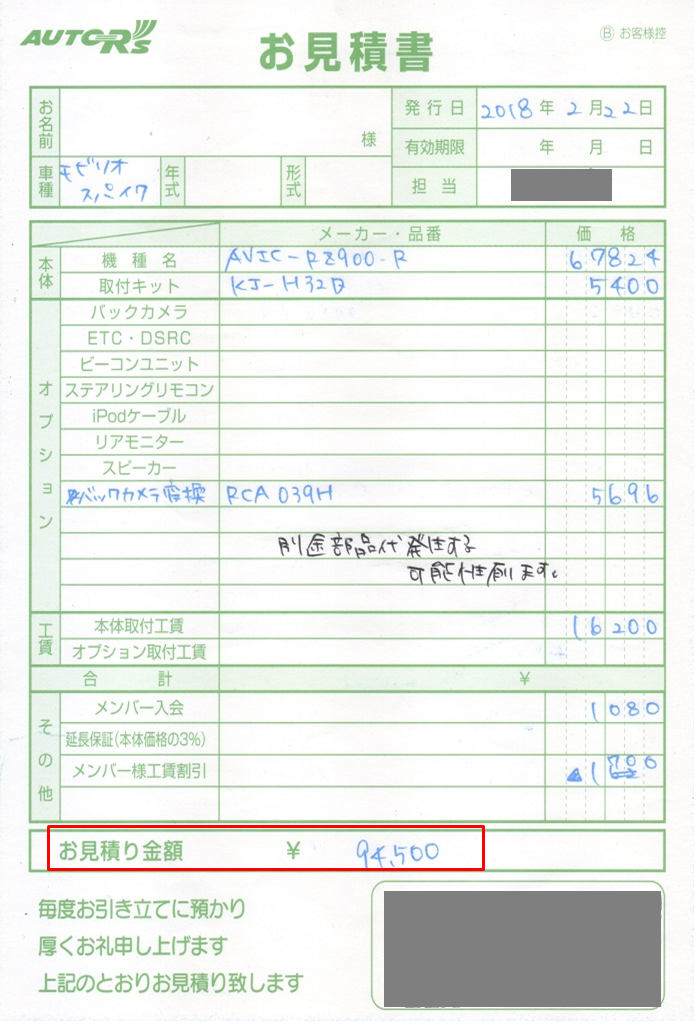 AUTOR's
お見積書
Ⓑ お客様控
お名前 様
発行日 2018年 2月22日
有効期限 年 月 日
車種 モビリオ スパイク 年式 形式
担当
メーカー・品番 価格
本体 機種名 AVIC-RZ900-R 67824
取付キット KJ-H32D 5400
オプション
バックカメラ
ETC・DSRC
ビーコンユニット
ステアリングリモコン
iPodケーブル
リアモニター
スピーカー
バックカメラ変換 RCA039H 5696
別途部品代発生する
可能性有ります。
工賃 本体取付工賃 16200
オプション取付工賃
合計 ¥
その他 メンバー入会 1080
延長保証(本体価格の3%)
メンバー様工賃割引 ▲1700
お見積り金額 ¥ 94,500
毎度お引き立てに預かり
厚くお礼申し上げます
上記のとおりお見積り致します